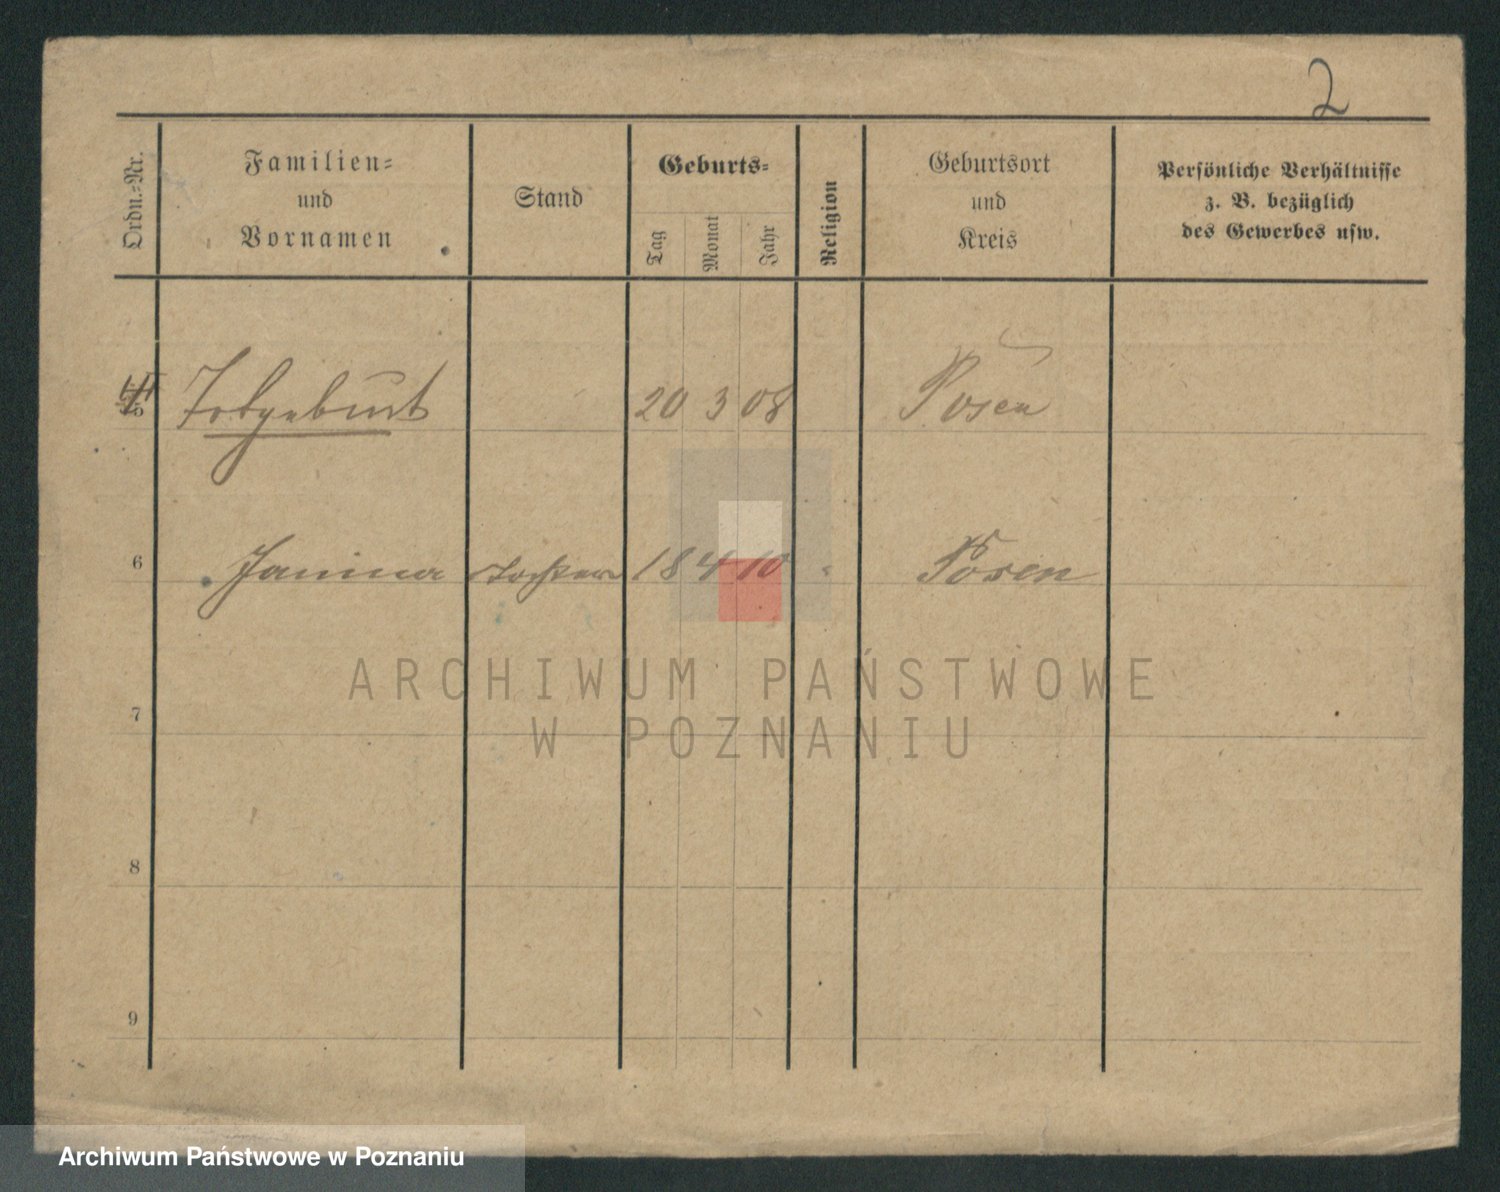 2
Ordn.-Nr.
Familien-
und
Vornamen
Stand
Geburts-
Tag
Monat
Jahr
Religion
Geburtsort
und
Kreis
Persönliche Verhältnisse
z. B. bezüglich
des Gewerbes usw.
5 Totgeburt 20 3 08 Posen
6 Janina Tochter 18 4 10 Posen
ARCHIWUM PAŃSTWOWE
7
W POZNANIU
8
9
Archiwum Państwowe w Poznaniu